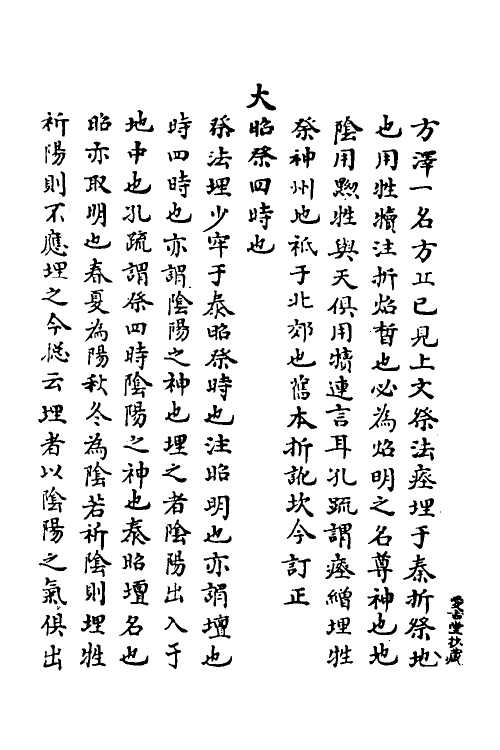 方澤一名方丘已見上文祭法瘞埋于泰折祭地
也用牲犢注折炤晢也必為炤明之名尊神也地
陰用黝牲與天俱用犢連言耳孔疏謂瘞繒埋牲
祭神州地祇于北郊也舊本折訛坎今訂正
大昭祭四時也
祭法埋少牢于泰昭祭時也注昭明也亦謂壇也
時四時也亦謂陰陽之神也埋之者陰陽出入于
地中也孔疏謂祭四時陰陽之神也泰昭壇名也
昭亦取明也春夏為陽秋冬為陰若祈陰則埋牲
祈陽則不應埋之今總云埋者以陰陽之氣俱出
愛古堂抄藏